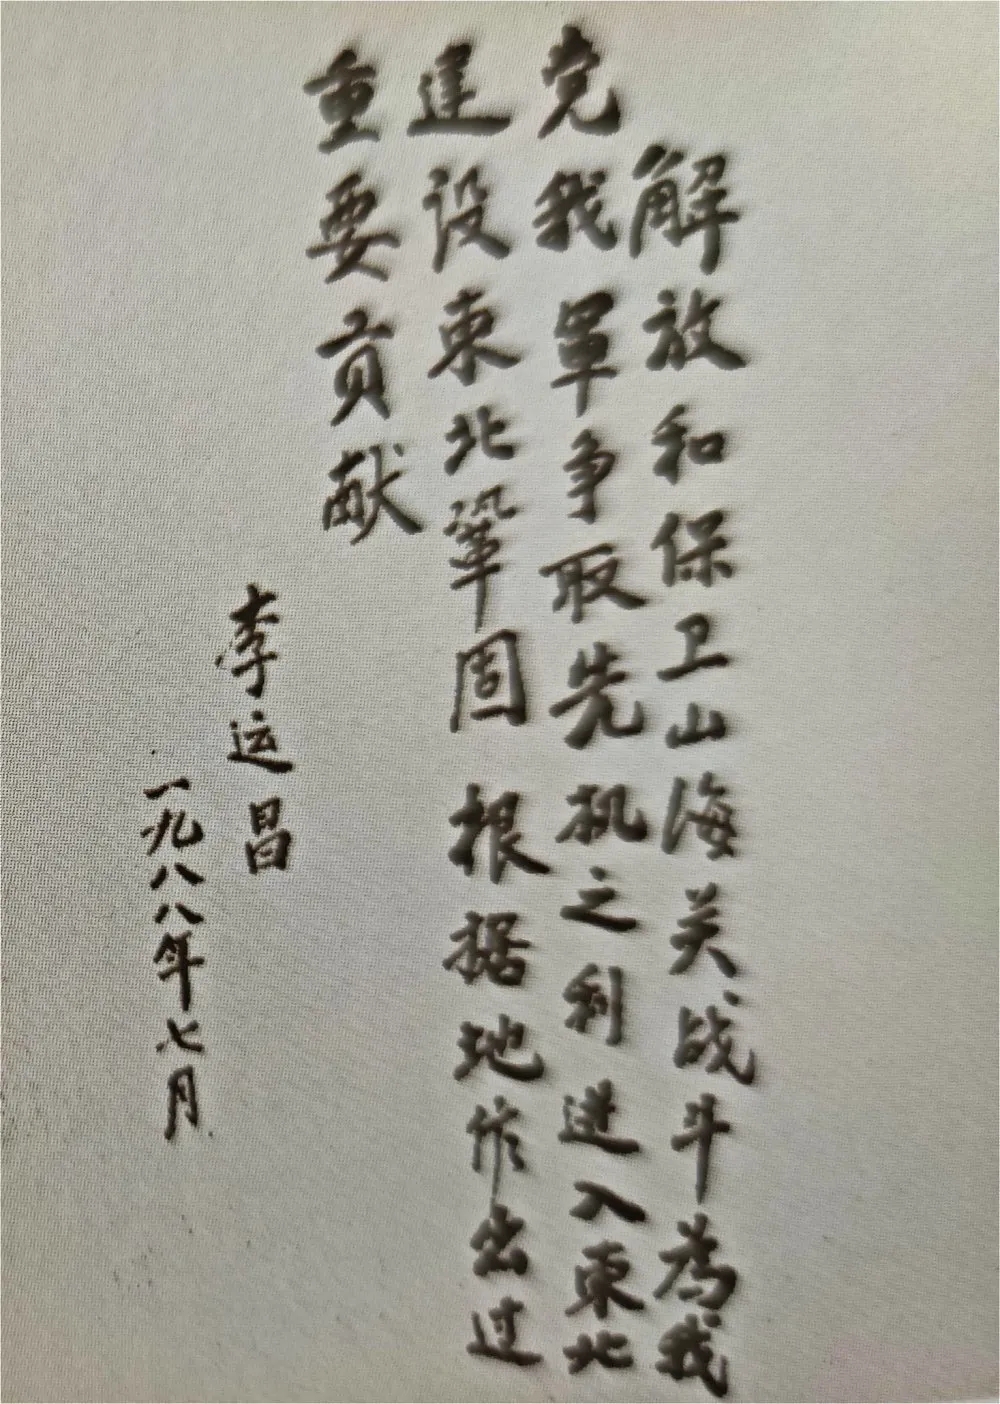 解放和保卫山海关战斗为我
党我军争取先机之利进入東北
建设東北巩固根据地作出过
重要贡献
李运昌
一九八八年七月